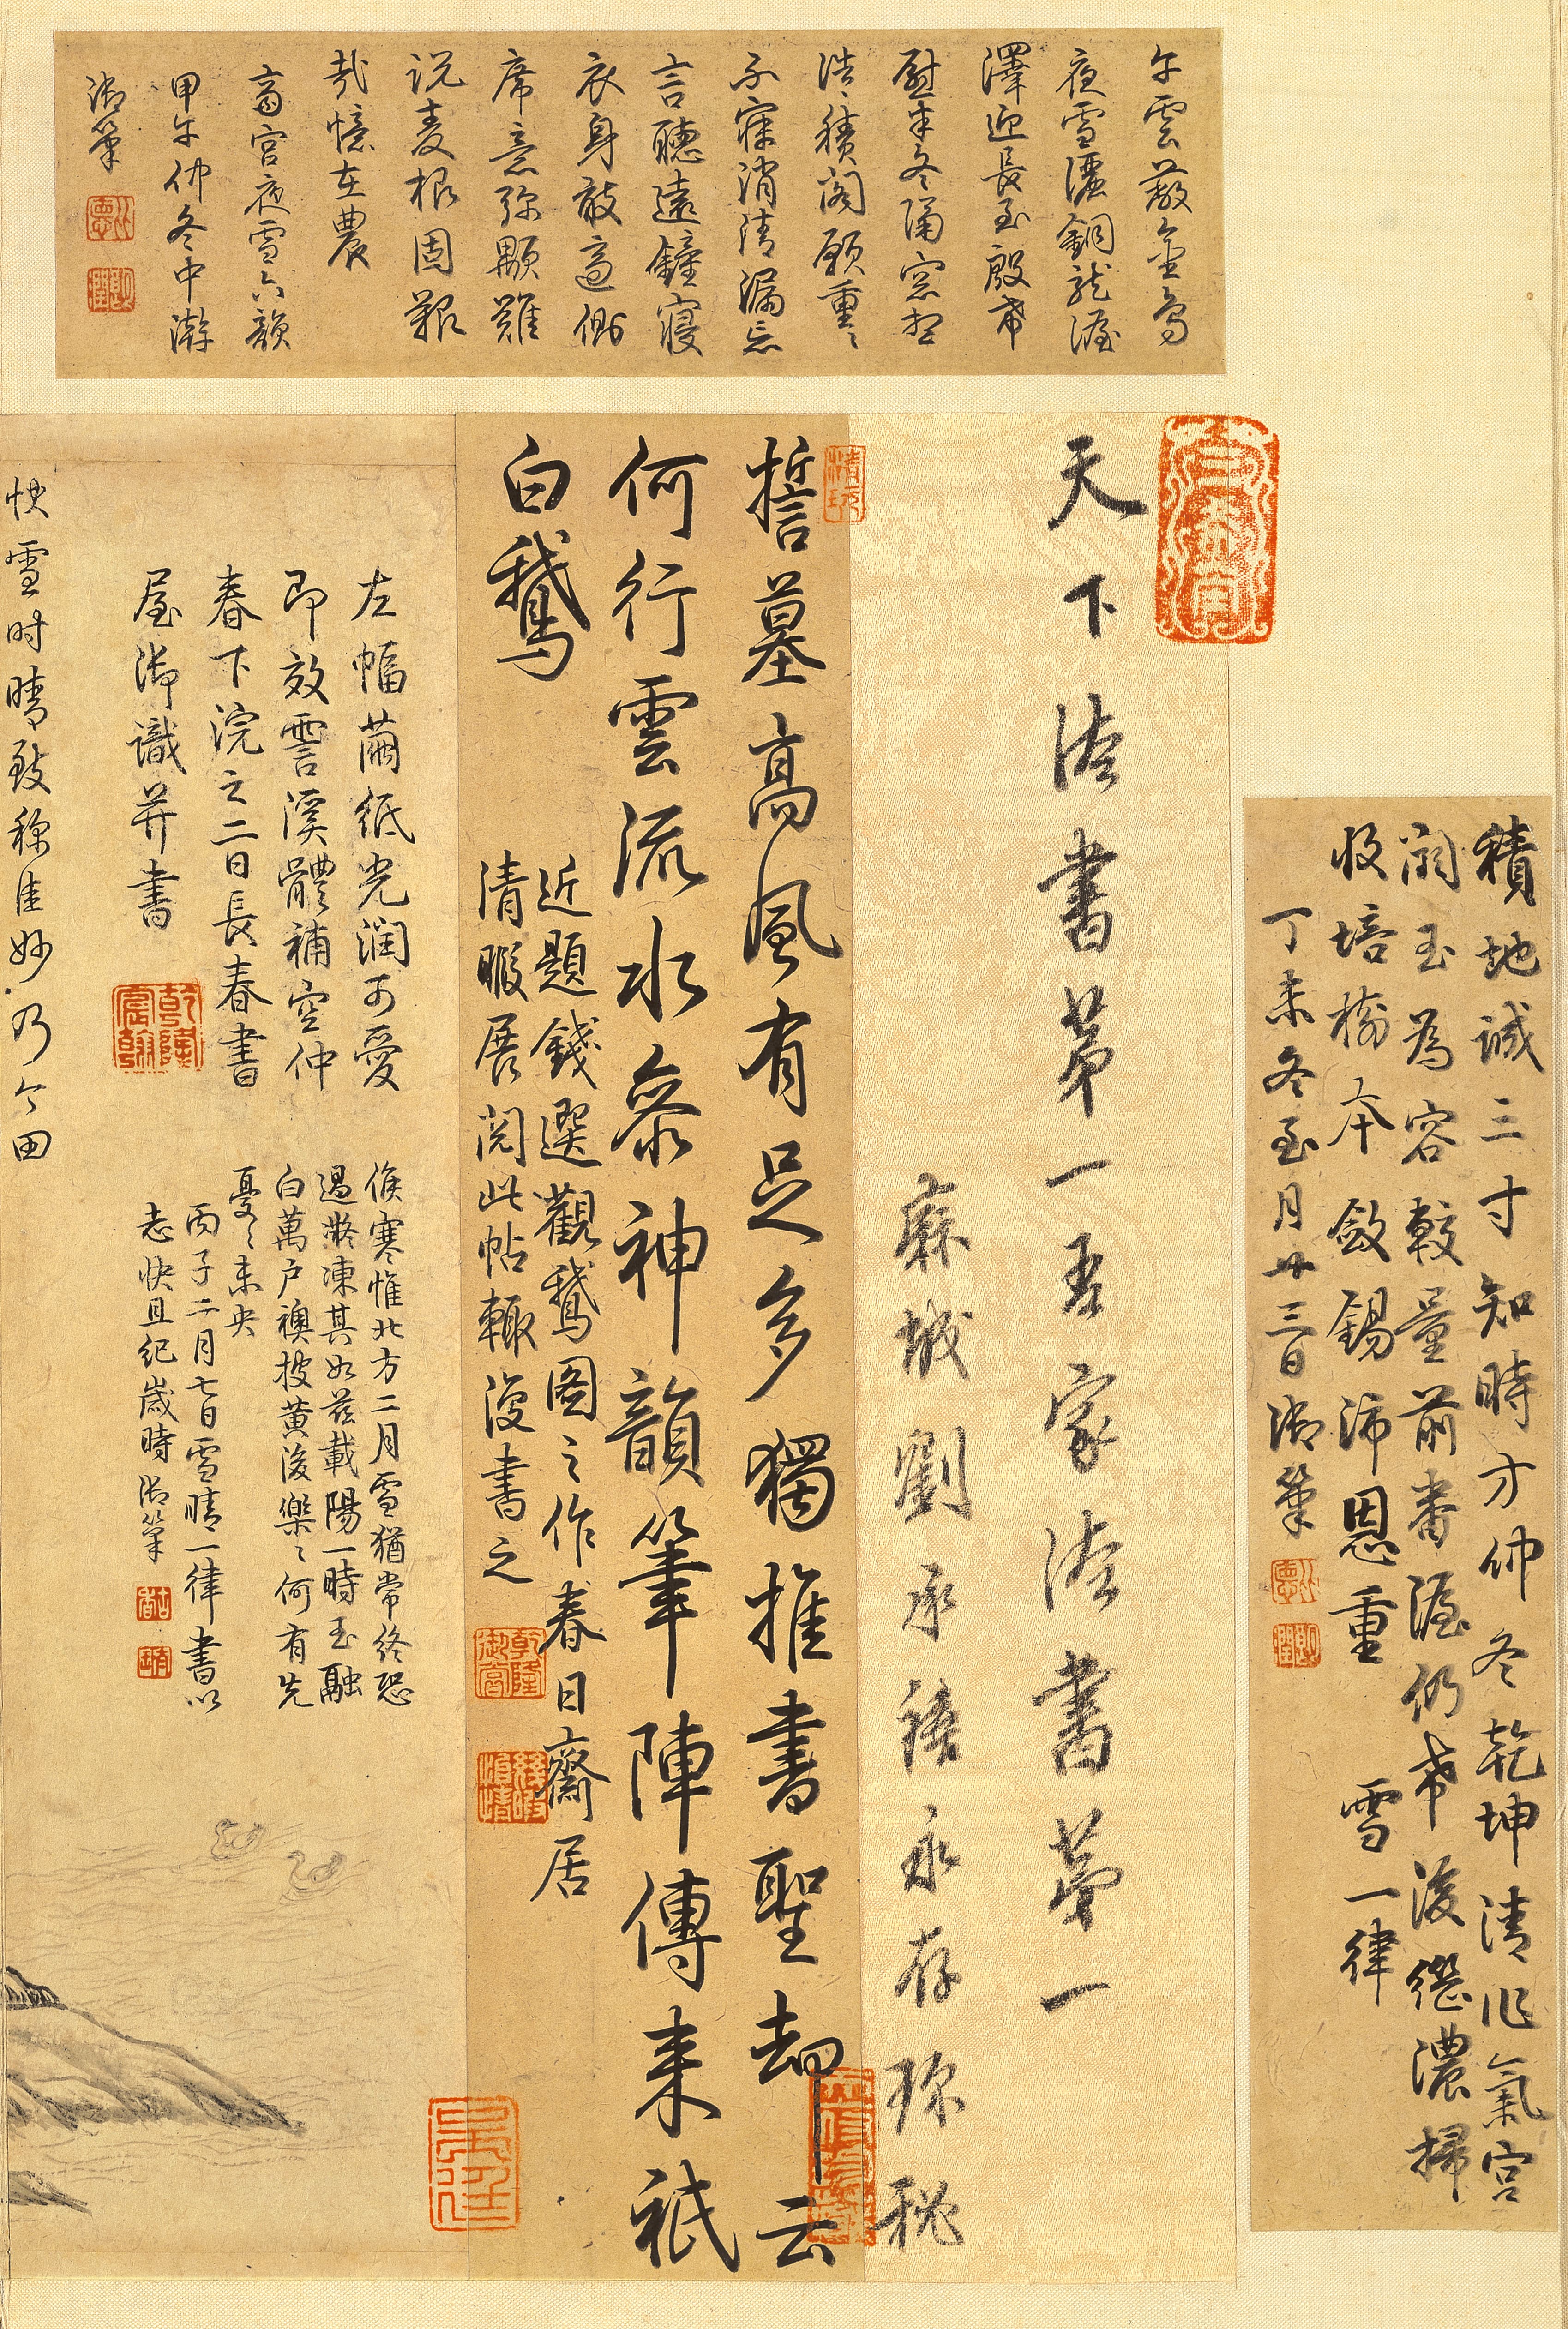 午雲蔽金烏
夜雪灑銅龍渥
澤迎長至殷希
慰半冬隔窓想
浩積閣願重〻
不寐消清漏忘
言聽遠鐘寢
衣身敢適側
席意弥顒難
説麦根固艱
哉憶在農
齋宮夜雪六韻
甲午仲冬中澣
御筆
積地諴三寸知時方仲冬乾坤清作氣宮
闕玉為容較量前番渥仍希後繼濃掃
收培榆本斂錫沛恩重 雪一律
丁未冬至月廿三日御筆
天下法書第一吾家法書第一
蘇城劉承禧永存珎秘
誓墓高風有足多獨推書聖却云
何行雲流水參神韻筆陣傳来祇
白鵝
近題錢選觀鵝图之作春日齋居
清暇展閱此帖輒漫書之
乾隆御賞
左幅繭紙光潤可愛
即效霅溪體補空仲
春下浣之二日長春書
屋御識并書
乾隆宸翰
候寒惟北方二月雪猶常終恐
過嚴凍其如茲載陽一時玉融
白萬戶襖披黄後樂〻何有先
憂〻未央
丙子二月七日雪晴一律書以
志快且紀歲時御筆
快雪时晴致称佳妙乃今田